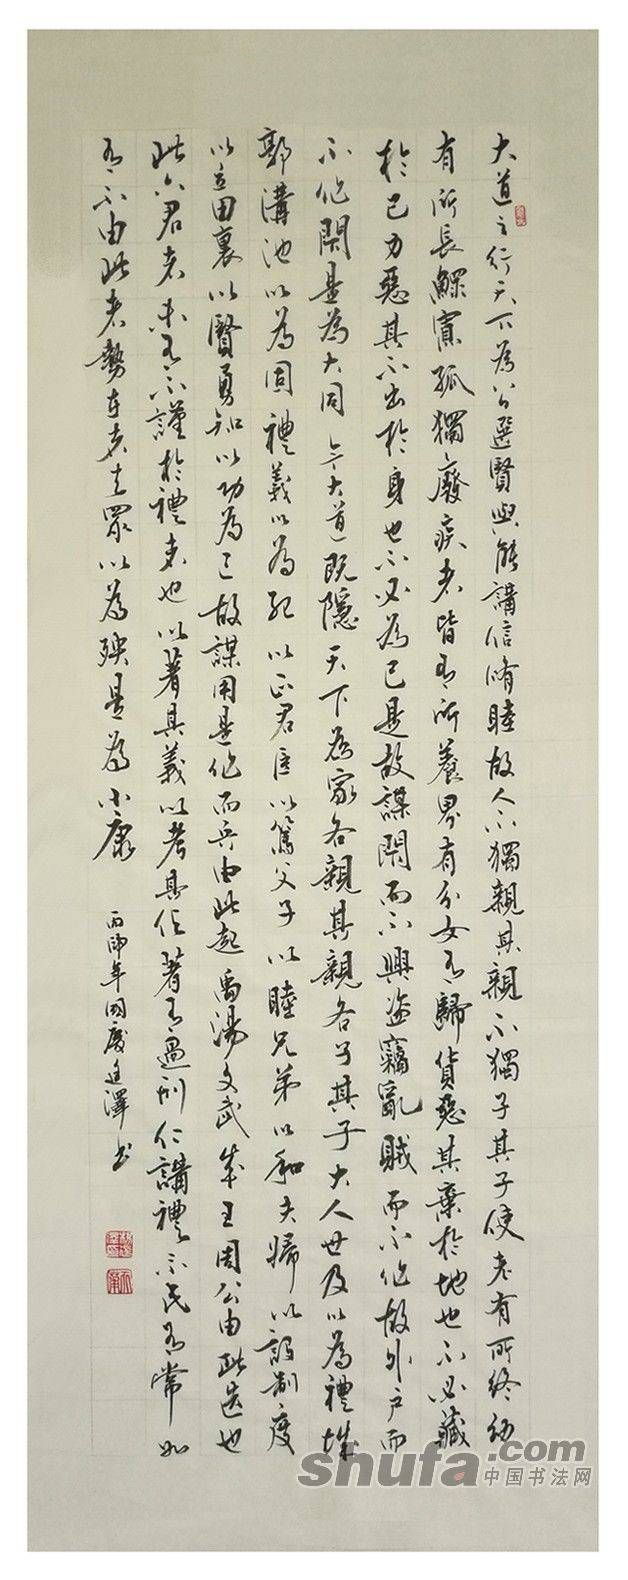 大道之行天下為公選賢與能講信脩睦故人不獨親其親不獨子其子使老有所終幼
有所長鰥寡孤獨廢疾者皆有所養男有分女有歸貨惡其棄於地也不必藏
於己力惡其不出於身也不必為己是故謀閑而不興盗竊亂賊而不作故外户而
不作閑是為大同今大道既隱天下為家各親其親各子其子大人世及以為禮城
郭溝池以為固禮義以為紀以正君臣以篤父子以睦兄弟以和夫婦以設制度
以立田裏以賢勇知以功為己故謀用是作而兵由此起禹湯文武成王周公由此选也
此六君者未有不謹於禮者也以著其義以考其信著有過刑仁講禮示民有常如
有不由此者勢在者去眾以為殃是為小康
國慶廷澤书
shufa.com
中国书法网